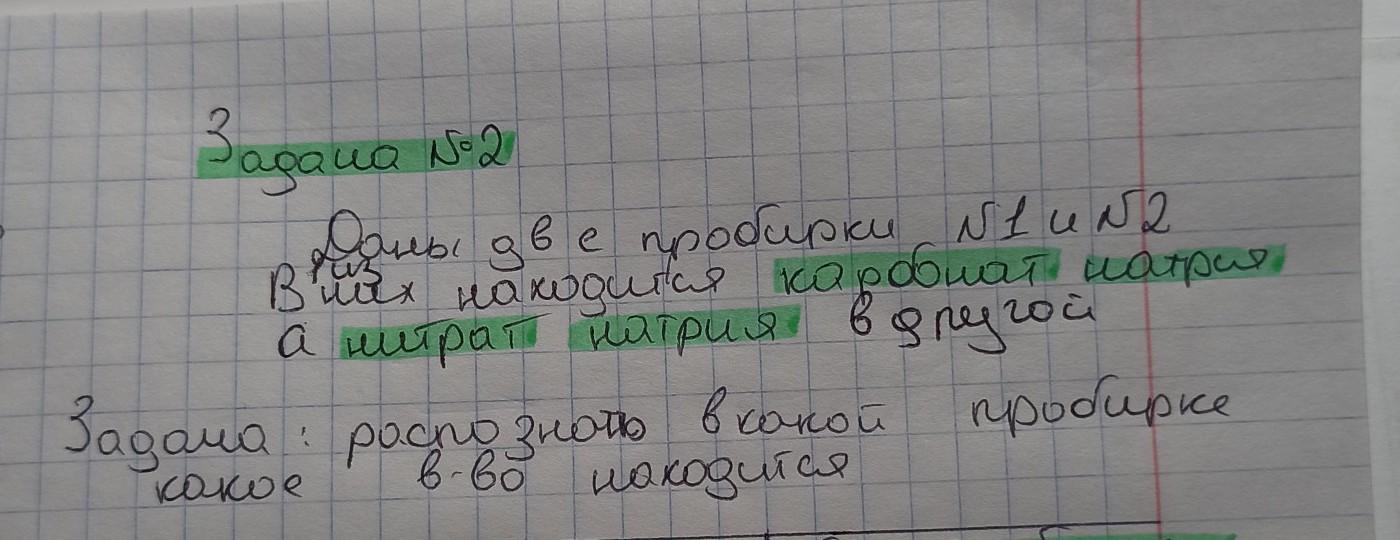 Задача №2
Даны две пробирки №1 и №2
В из них находится карбонат натрия
а нитрат натрия в другой
Задача: распознать в какой пробирке
какое в-во находится